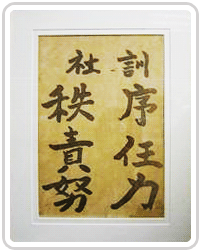 社訓
秩序
責任
努力